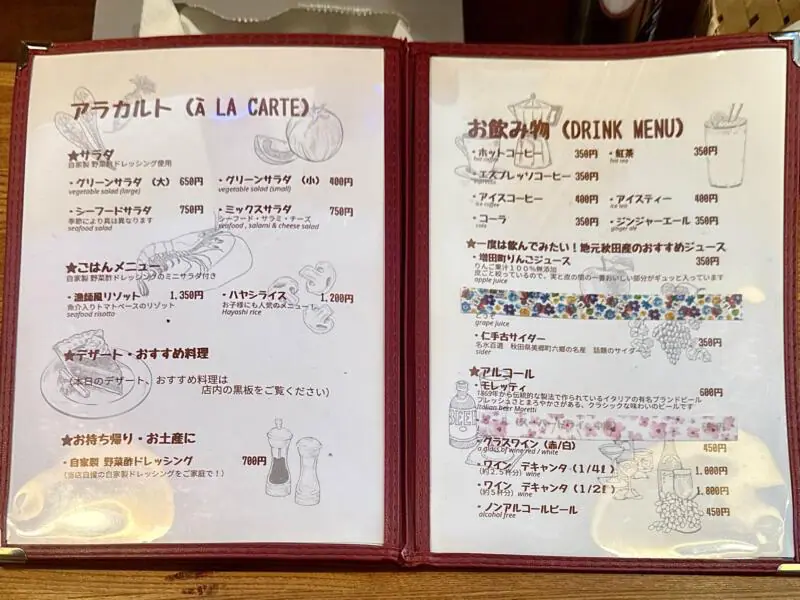 アラカルト (À LA CARTE)
★サラダ
自家製 野菜酢ドレッシング使用
・グリーンサラダ (大) 650円
vegetable salad (large)
・グリーンサラダ (小) 400円
vegetable salad (small)
・シーフードサラダ 750円
季節により具は異なります
seafood salad
・ミックスサラダ 750円
シーフード・サラミ・チーズ
seafood , salami & cheese salad
★ごはんメニュー
自家製 野菜酢ドレッシングのミニサラダ付き
・漁師風リゾット 1,350円
魚介入りトマトベースのリゾット
seafood risotto
・ハヤシライス 1,200円
お子様にも人気のメニュー！
Hayashi rice
★デザート・おすすめ料理
(本日のデザート、おすすめ料理は
店内の黒板をご覧ください)
★お持ち帰り・お土産に
・自家製 野菜酢ドレッシング 700円
(当店自慢の自家製ドレッシングをご家庭で！)
お飲み物 (DRINK MENU)
・ホットコーヒー 350円
hot coffee
・紅茶 350円
hot tea
・エスプレッソコーヒー 350円
espresso
・アイスコーヒー 400円
ice coffee
・アイスティー 400円
ice tea
・コーラ 350円
cola
・ジンジャーエール 350円
ginger ale
★一度は飲んでみたい！地元秋田産のおすすめジュース
・増田町りんごジュース 350円
りんご果汁１００％無添加
皮ごと絞っているので、実と皮の間の一番おいしい部分がギュッと入っています
apple juice
grape juice
・仁手古サイダー 350円
名水百選 秋田県美郷町六郷の名産 話題のサイダー
sider
★アルコール
・モレッティ 600円
1869年から伝統的な製法で作られているイタリアの有名ブランドビール
フレッシュさとまろやかさがある、クラシックな味わいのビールです
Italian beer Moretti
・グラスワイン (赤/白) 450円
a glass of wine red / white
・ワイン デキャンタ (1/4ℓ) 1,000円
(約２.５杯分) wine
・ワイン デキャンタ (1/2ℓ) 1,800円
(約５杯分) wine
・ノンアルコールビール 450円
alcohol free